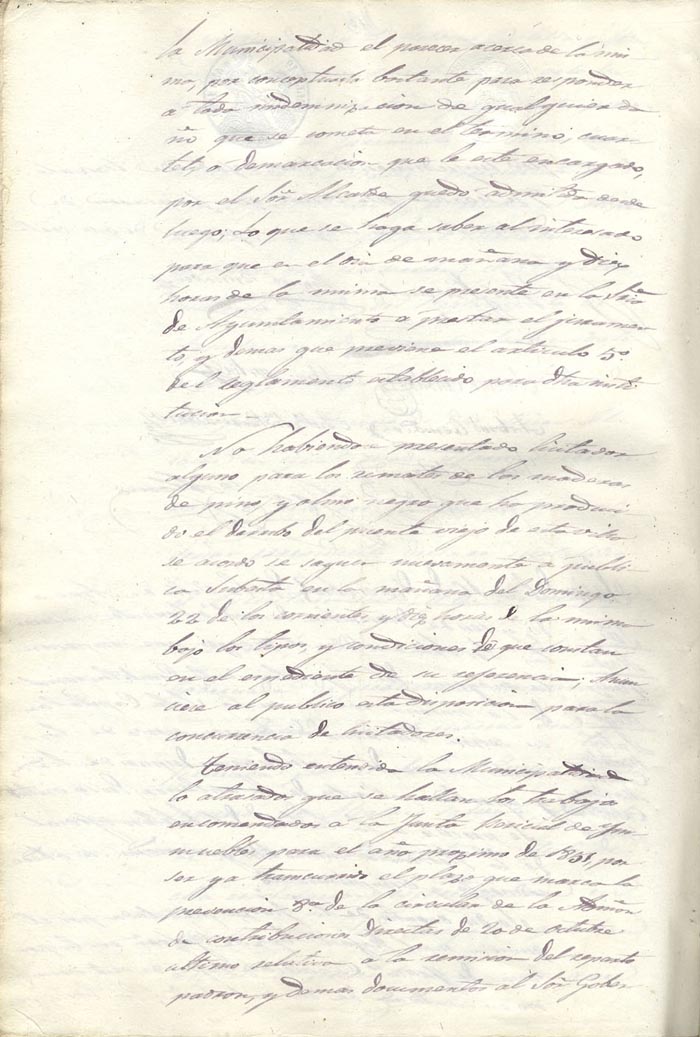 la Municipalidad el parecer acerca de la mis-
ma, por conceptuarla bastante para responder
a toda indemnizacion de qualquier da-
ño que se cometa en el termino, cuar-
tel, o demarcacion que le esté encargado,
por el Sor Alcalde quedó admitida desde
luego; Lo que se haga saber al interesado
para que en el dia de mañana y diez
horas de la misma se presente en la Sria
de Ayuntamiento a prestar el juramen-
to, y demas que previene el articulo 5.o
del reglamento establecido para dha insti-
tucion
No habiendose presentado licitador
alguno para los remates de las maderas
de pino, y alamo negro que ha produci-
do el derribo del puente viejo de esta villa
se acordó se saquen nuevamente a publi-
ca subasta en la mañana del Domingo
22 de los corrientes y diez horas de la misma
bajo los tipos, y condiciones de que constan
en el espediente de su referencia; Anun-
ciese al publico esta disposicion para la
concurrencia de licitadores.
Teniendo entendido la Municipalidad
lo atrasados que se hallan los trabajos
encomendados a la Junta Pericial de Ym-
muebles para el año proximo de 1851, por
ser ya transcurrido el plazo que marca la
prevencion 8.a de la circular de la Admon
de contribuciones directas de 20 de octubre
ultimo relativa a la remision del reparto
padron, y demas documentos al Sor Gober